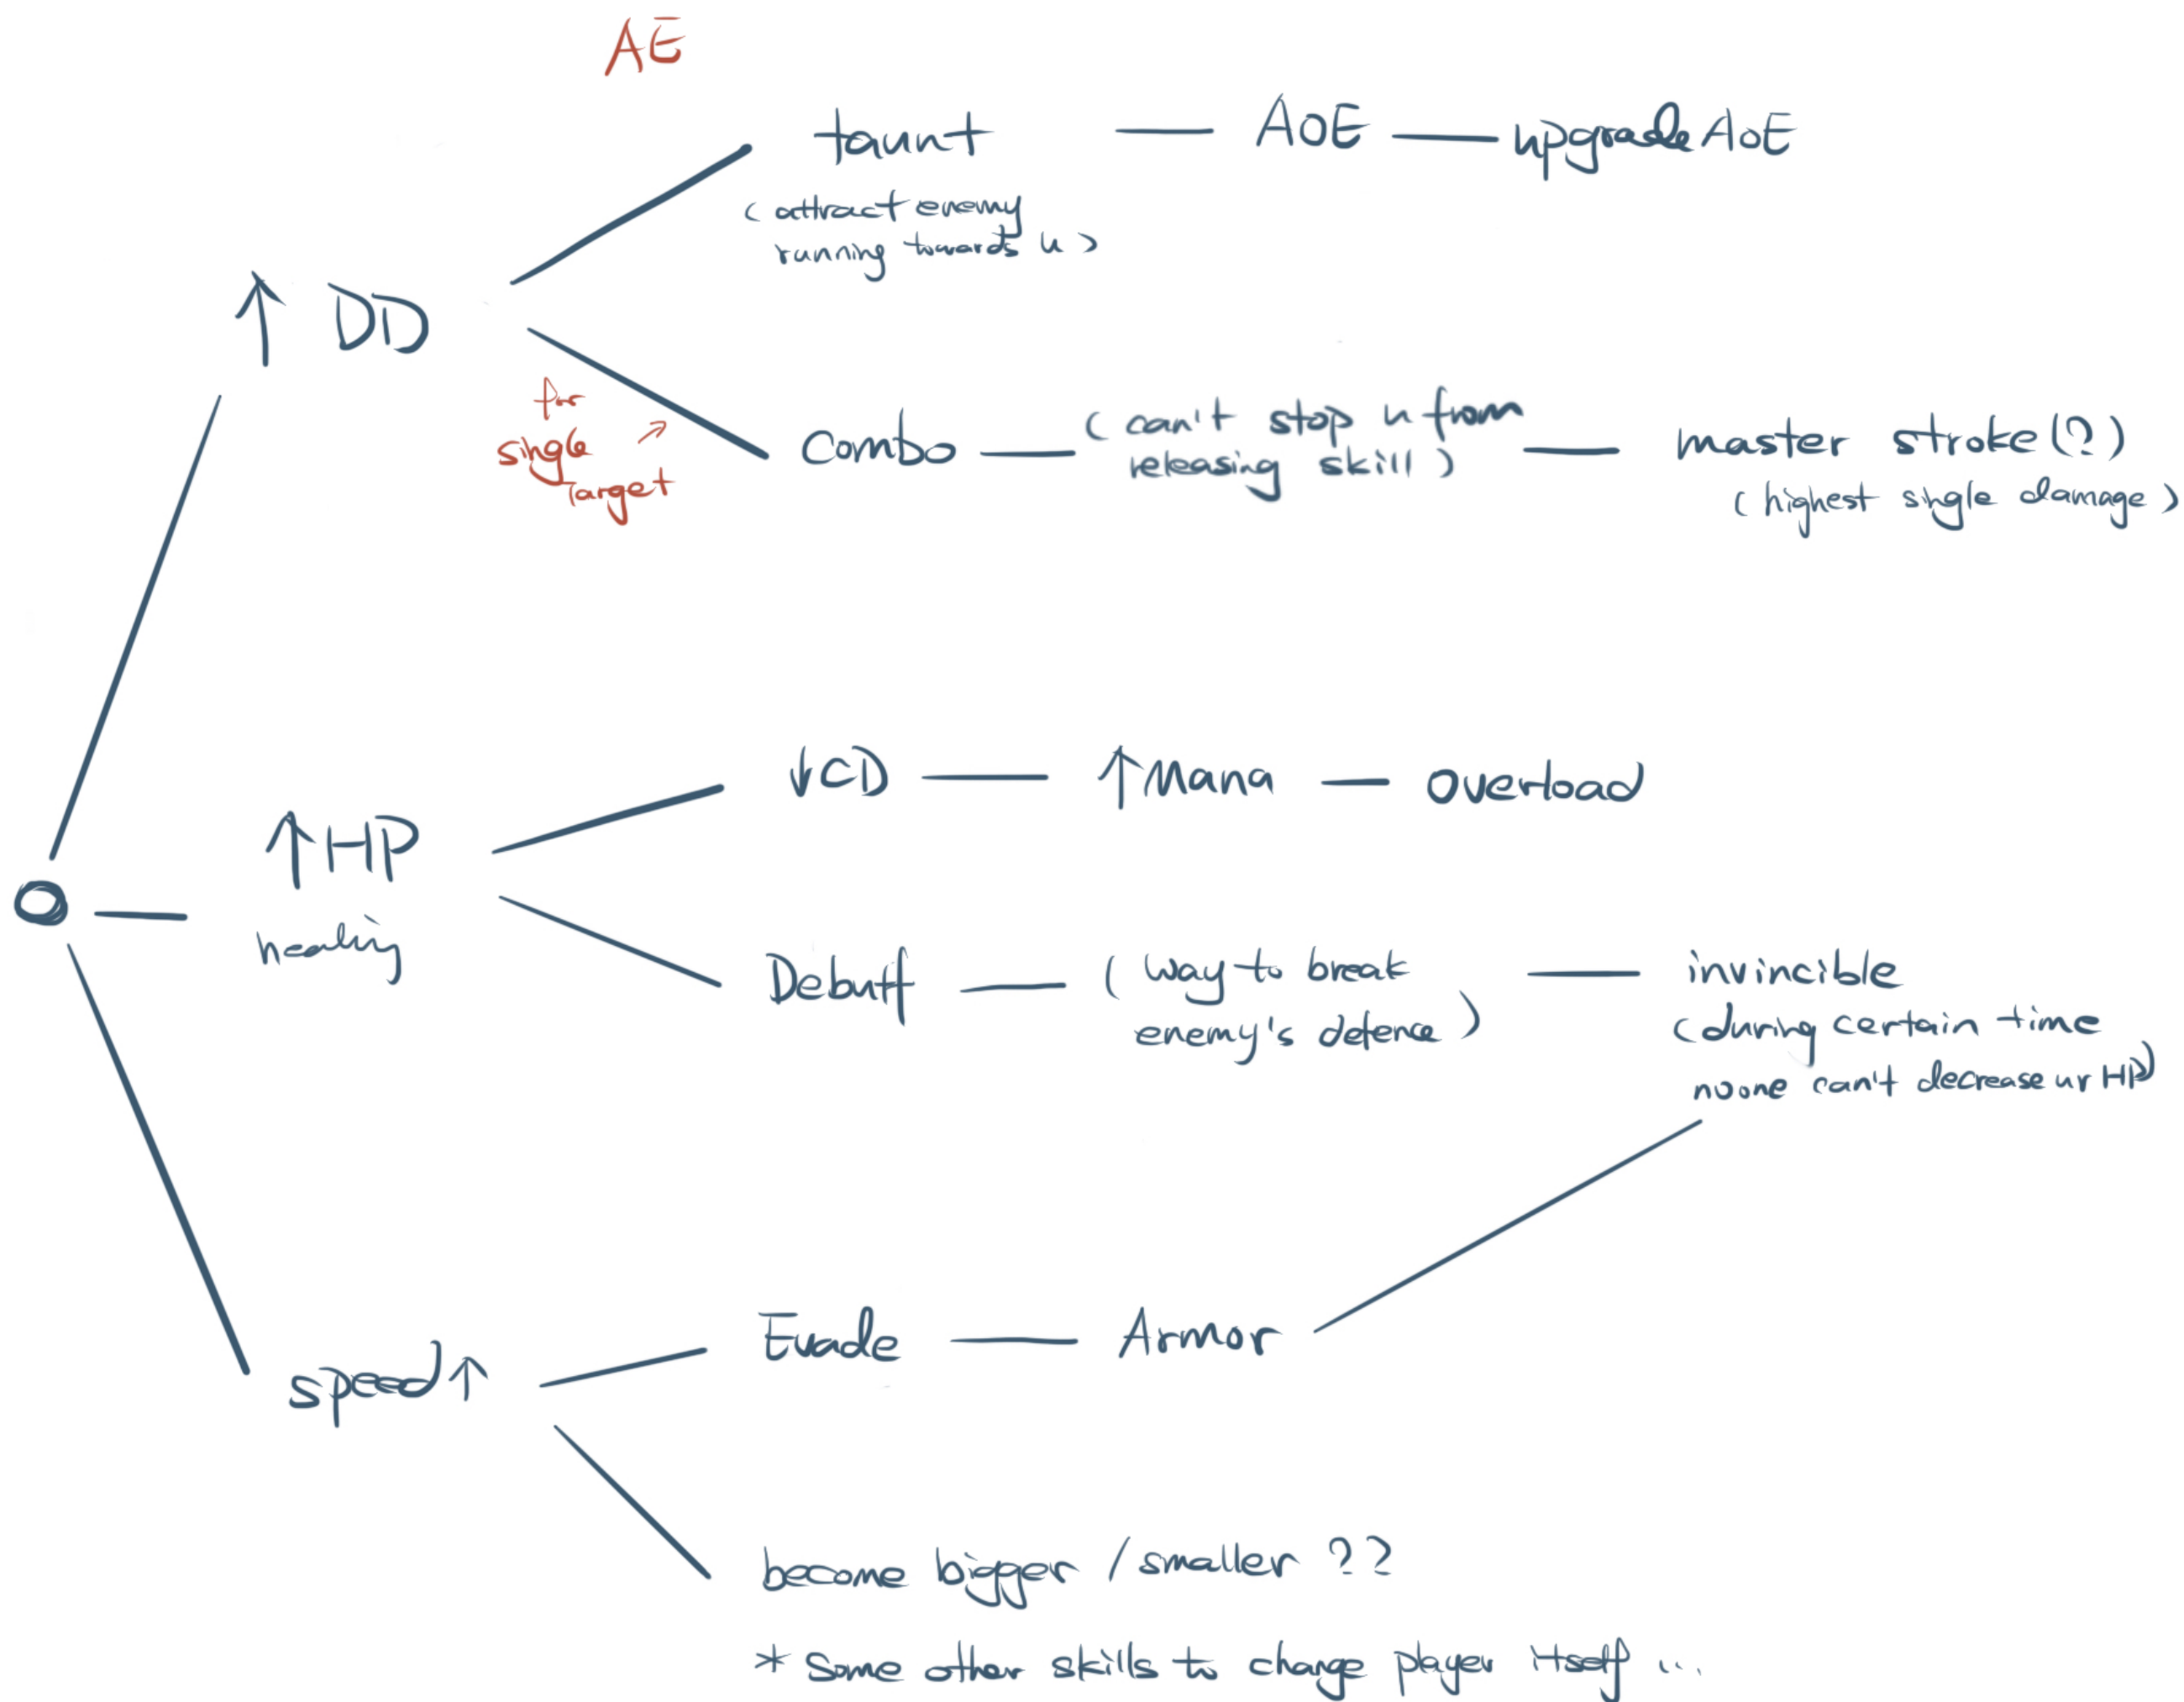 AE
taunt — AOE — upgrade AOE
(attract enemy
running towards u)
↑ DD
for
single ↗
Target
Combo — (can't stop u from
releasing skill) — master stroke(?)
(highest single damage)
↓CD — ↑Mana — overload
↑HP
healing
Debuff — (way to break
enemy's defence) — invincible
(during certain time
noone can't decrease ur HP)
Evade — Armor
speed↑
become bigger / smaller ??
* Some other skills to change player itself ...